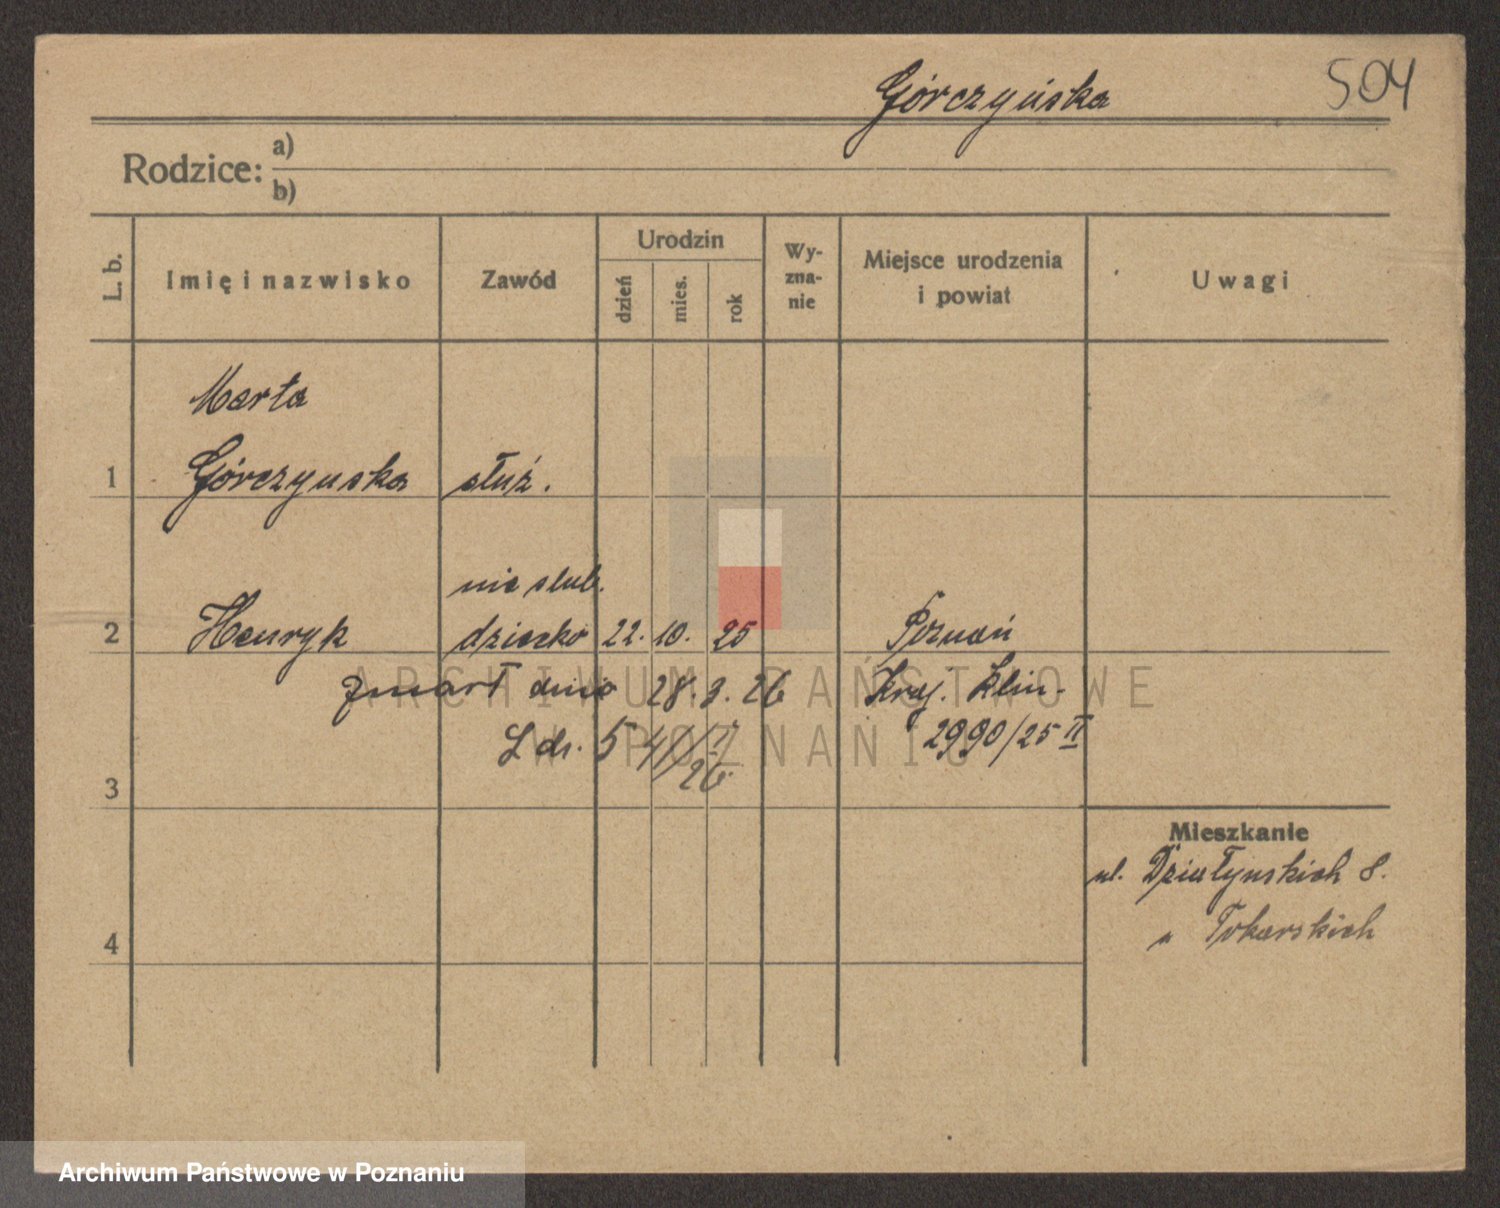 Górczyńska 504
Rodzice: a)
b)
L. b. Imię i nazwisko Zawód Urodzin dzień mies. rok Wy-zna-nie Miejsce urodzenia i powiat Uwagi
Marta
1 Górczynska służ.
nieślub.
2 Henryk dziecko 22. 10. 25 Poznań
zmarł dnia 28. 3. 26 Kraj. Klin.
L. dz. 541/ 26 2990/25 II
3
Mieszkanie
ul. Działynskich 8.
4
u Tokarskich
ARCHIWUM PAŃSTWOWE
W POZNANIU
Archiwum Państwowe w Poznaniu